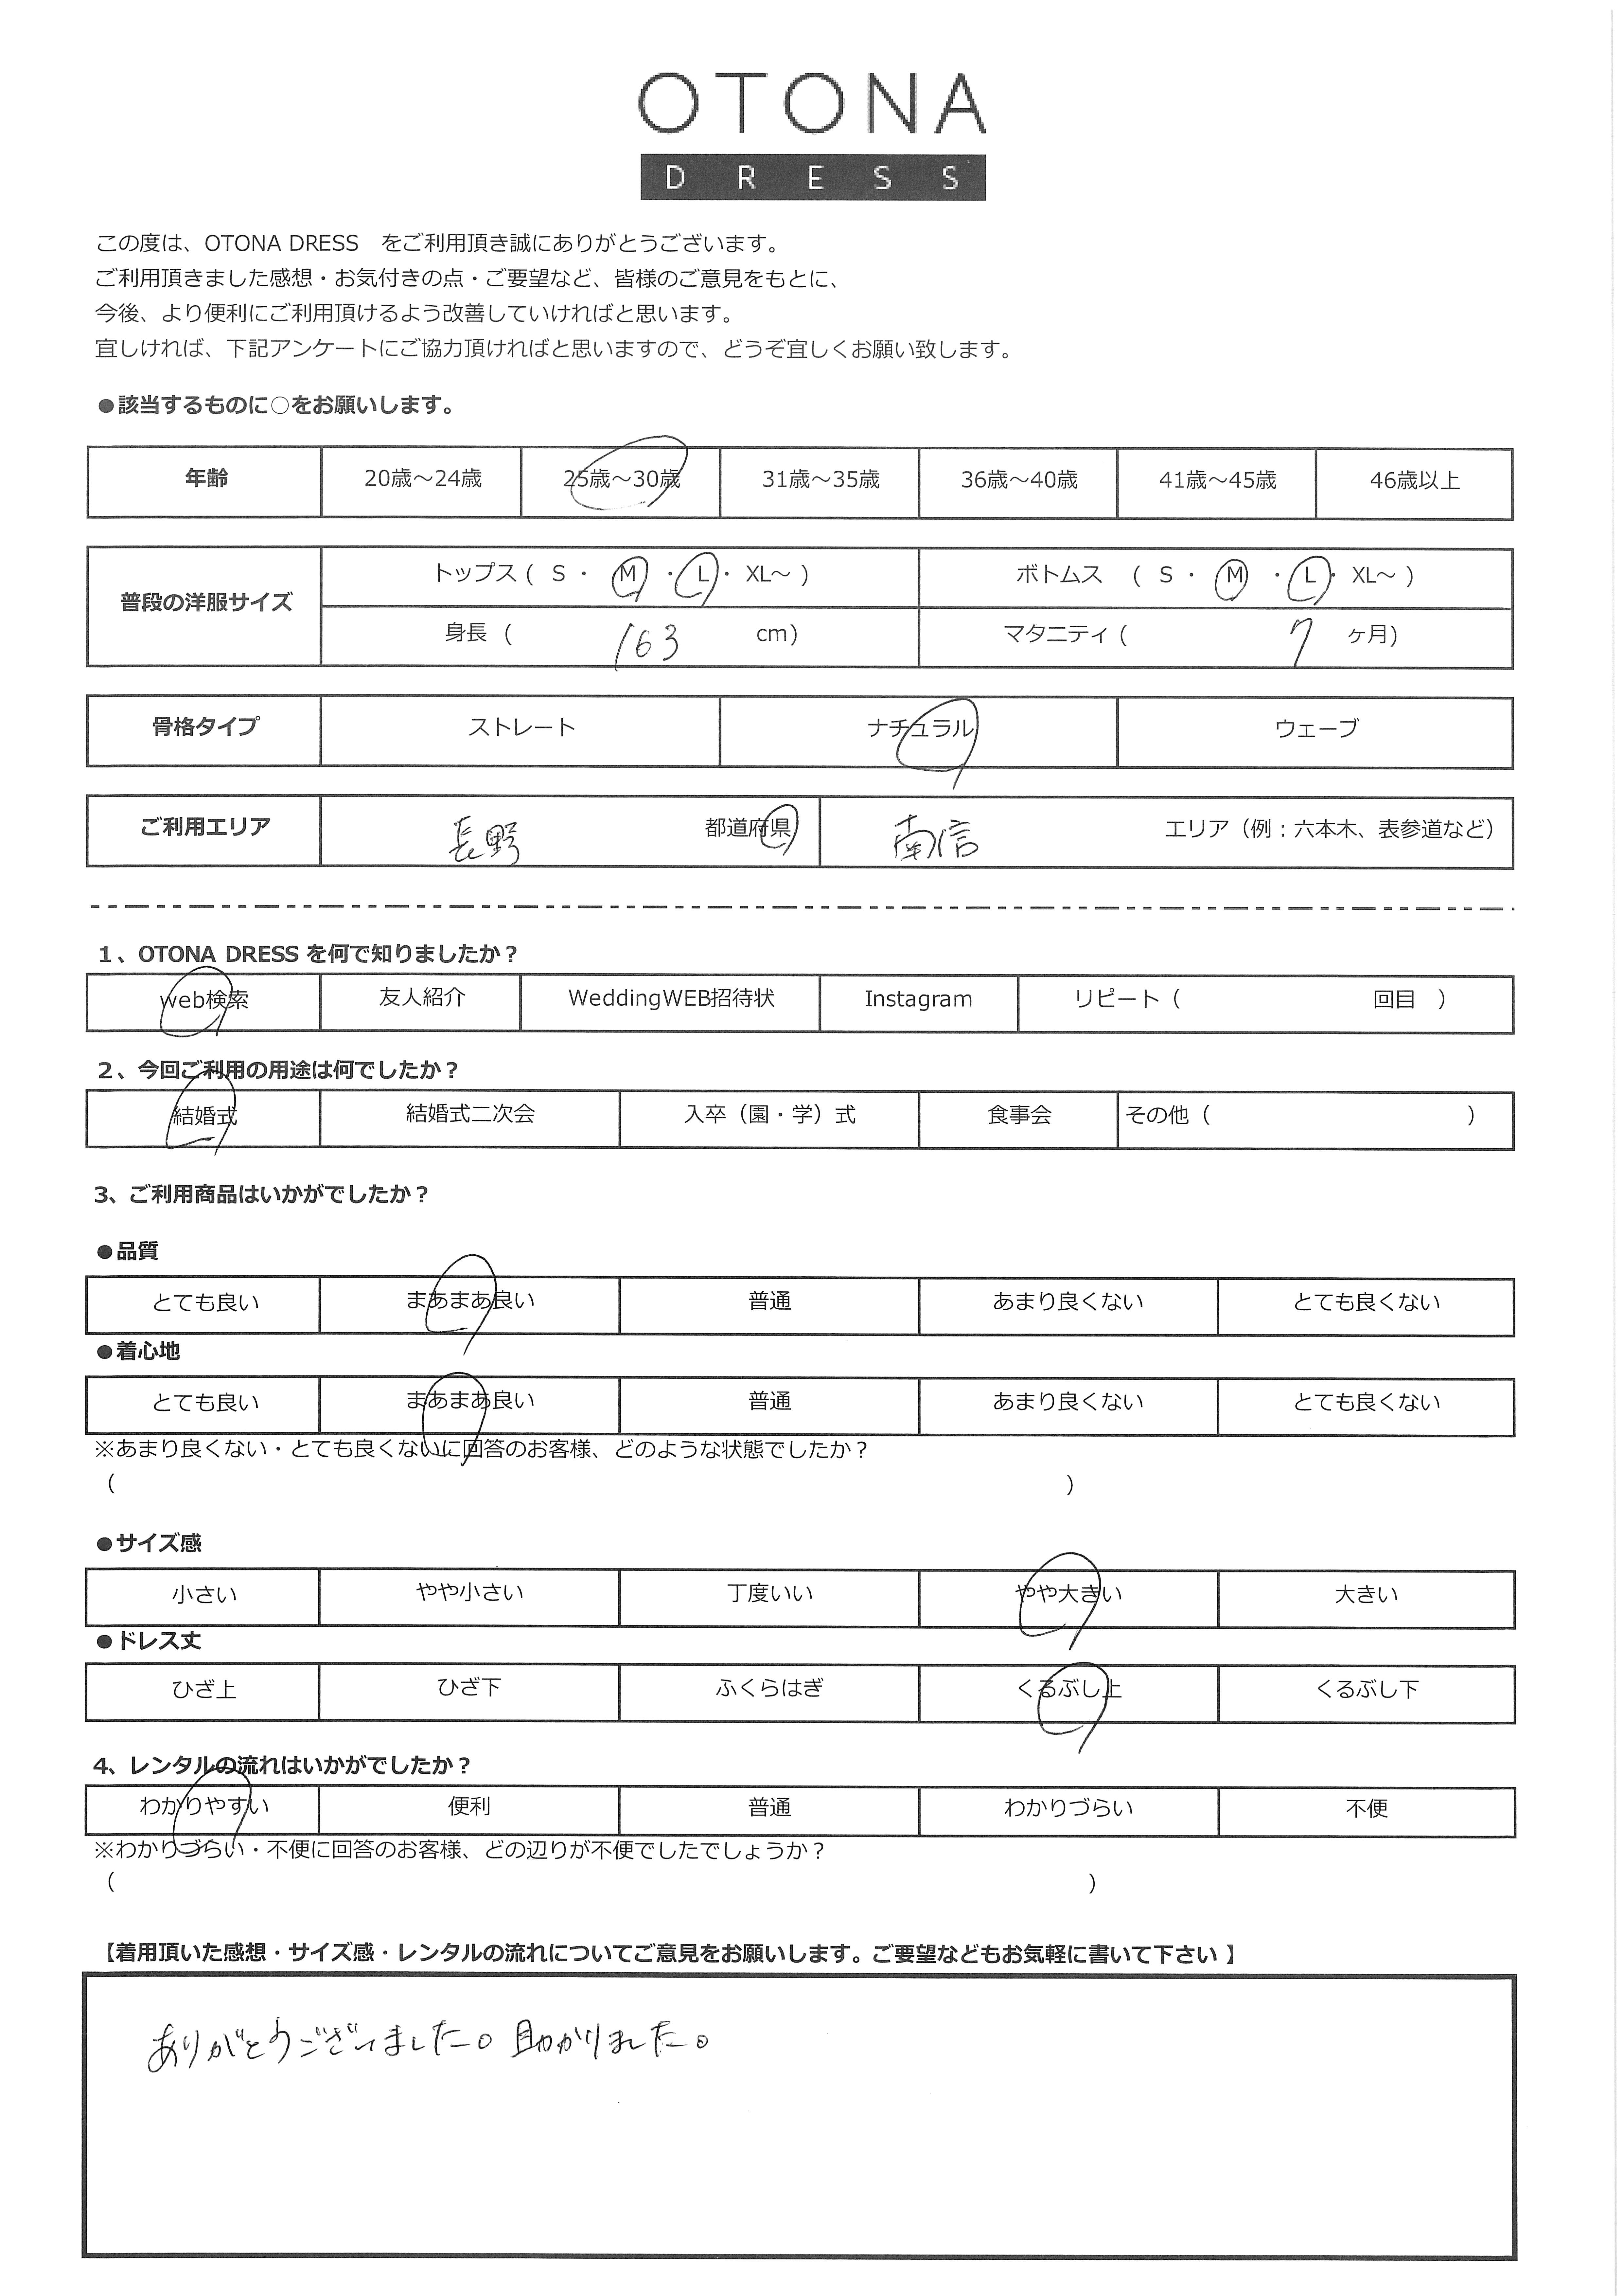 OTONA
DRESS
この度は、OTONA DRESS　をご利用頂き誠にありがとうございます。
ご利用頂きました感想・お気付きの点・ご要望など、皆様のご意見をもとに、
今後、より便利にご利用頂けるよう改善していければと思います。
宜しければ、下記アンケートにご協力頂ければと思いますので、どうぞ宜しくお願い致します。
●該当するものに○をお願いします。
年齢 20歳～24歳 25歳～30歳 31歳～35歳 36歳～40歳 41歳～45歳 46歳以上
普段の洋服サイズ トップス ( S ・ M ・ L ・ XL～ ) ボトムス ( S ・ M ・ L ・ XL～ )
身長 ( 163 cm) マタニティ ( 7 ヶ月)
骨格タイプ ストレート ナチュラル ウェーブ
ご利用エリア 長野 都道府県 南信 エリア（例：六本木、表参道など）
1、OTONA DRESS を何で知りましたか？
web検索 友人紹介 WeddingWEB招待状 Instagram リピート（ 回目 ）
2、今回ご利用の用途は何でしたか？
結婚式 結婚式二次会 入卒（園・学）式 食事会 その他（ ）
3、ご利用商品はいかがでしたか？
●品質
とても良い まあまあ良い 普通 あまり良くない とても良くない
●着心地
とても良い まあまあ良い 普通 あまり良くない とても良くない
※あまり良くない・とても良くないに回答のお客様、どのような状態でしたか？
（ ）
●サイズ感
小さい やや小さい 丁度いい やや大きい 大きい
●ドレス丈
ひざ上 ひざ下 ふくらはぎ くるぶし上 くるぶし下
4、レンタルの流れはいかがでしたか？
わかりやすい 便利 普通 わかりづらい 不便
※わかりづらい・不便に回答のお客様、どの辺りが不便でしたでしょうか？
（ ）
【着用頂いた感想・サイズ感・レンタルの流れについてご意見をお願いします。ご要望などもお気軽に書いて下さい 】
ありがとうございました。助かりました。